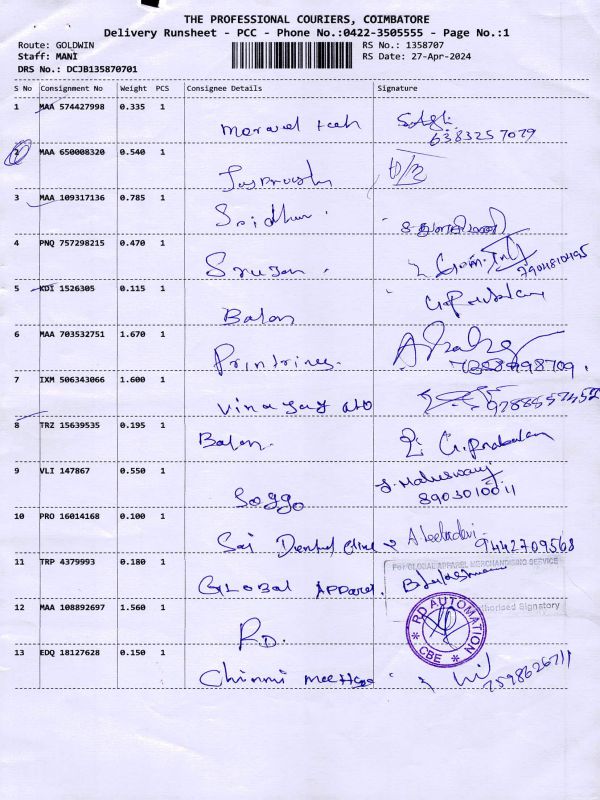 THE PROFESSIONAL COURIERS, COIMBATORE
Delivery Runsheet - PCC - Phone No.:0422-3505555 - Page No.:1
Route: GOLDWIN RS No.: 1358707
Staff: MANI RS Date: 27-Apr-2024
DRS No.: DCJB135870701
S No Consignment No Weight PCS Consignee Details Signature
1 MAA 574427998 0.335 1
6383257079
2 MAA 650008320 0.540 1
3 MAA 109317136 0.785 1
Sridhar.
4 PNQ 757298215 0.470 1
7904810495
5 KDI 1526305 0.115 1
Balan G.Prabakaran
6 MAA 703532751 1.670 1
7358498709
7 IXM 506343066 1.600 1
Vinayaga
8 TRZ 15639535 0.195 1
Balan. G.Prabakaran
9 VLI 147867 0.550 1
Soggo J. Maheswary
8903010011
10 PRO 16014168 0.100 1
Sai Dental Clinic
9442709568
11 TRP 4379993 0.180 1
For GLOBAL APPAREL MERCHANDISING SERVICE
GLOBAL APPAREL.
Authorised Signatory
12 MAA 108892697 1.560 1
RD AUTOMATION
CBE
RD.
13 EDQ 18127628 0.150 1
Chinni
7598626711